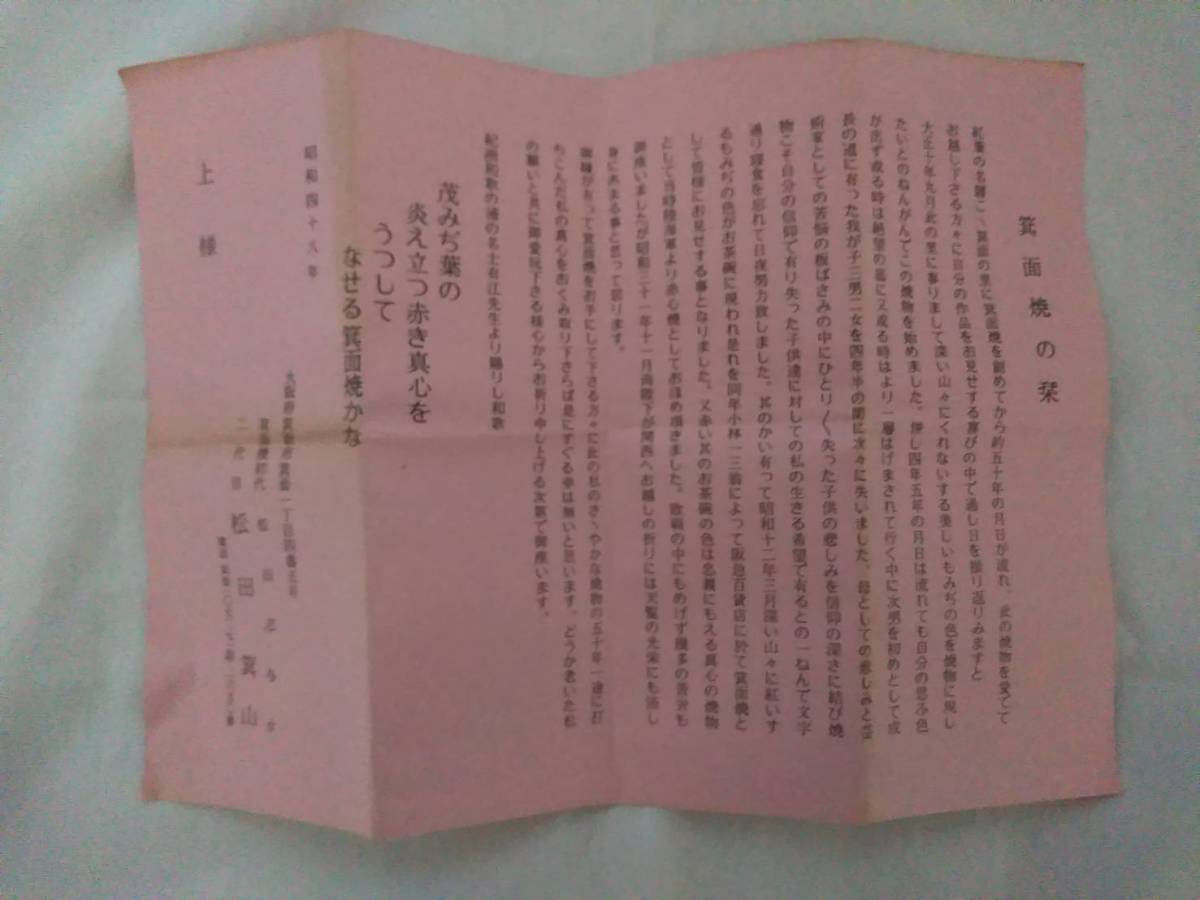 箕面焼の栞
紅葉の名勝こゝ箕面の里に箕面焼を創めてから約五十年の月日が流れ、此の焼物を愛でて
お越し下さる方々に自分の作品をお見せする喜びの中で過し日を振り返りみますと
大正十年九月此の里に参りまして深い山々にくれないする美しいもみぢの色を焼物に現し
たいとのねんがんでこの焼物を始めました。併し四年五年の月日は流れても自分の思ふ色
が出ず或る時は絶望の底に又或る時はより一層はげまされて行く中に次男を初めとして成
長の道に有った我が子三男二女を四年半の間に次々に失いました。母としての悲しみと芸
術家としての苦悩の板ばさみの中にひとり〱失った子供の悲しみを信仰の深さに結び焼
物こそ自分の信仰で有り失った子供達に対しての私の生きる希望で有るとの一ねんで文字
通り寝食を忘れて日夜努力致しました。其のかい有って昭和十二年三月深い山々に紅いす
るもみぢの色がお茶碗に現われ是れを同年小林一三翁によって阪急百貨店に於て箕面焼と
して皆様にお見せする事となりました。又赤い其のお茶碗の色は忠義にもえる真心の焼物
として当時陸海軍より赤心焼としておほめ頂きました。敗戦の中にもめげず幾多の苦労も
御座いましたが昭和三十一年十一月両陛下が関西へお越しの折りには天覧の光栄にも浴し
身にあまる事と思って居ります。
御縁が有って箕面焼をお手にして下さる方々に此の私のさゝやかな焼物の五十年一途に打
ちこんだ私の真心をおくみ取り下さらば是にすぐる幸は無いと思います。どうか老いた私
の願いと共に御愛玩下さる様心からお祈り申し上げる次第で御座います。
紀州和歌の浦の名士有江先生より賜りし和歌
茂みぢ葉の
炎え立つ赤き真心を
うつして
なせる箕面焼かな
昭和四十八年
大阪府箕面市箕面一丁目四番五号
箕面焼初代 松田
二代目 松田箕山
電話 箕面
上様